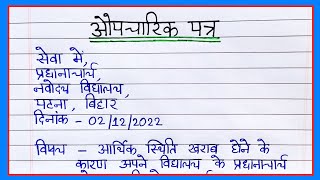 औपचारिक पत्र
सेवा में,
प्रधानाचार्य,
नवोदय विद्यालय,
पटना, बिहार
दिनांक - 02/12/2022
विषय - आर्थिक स्थिति खराब होने के
कारण अपने विद्यालय के प्रधानाचार्य